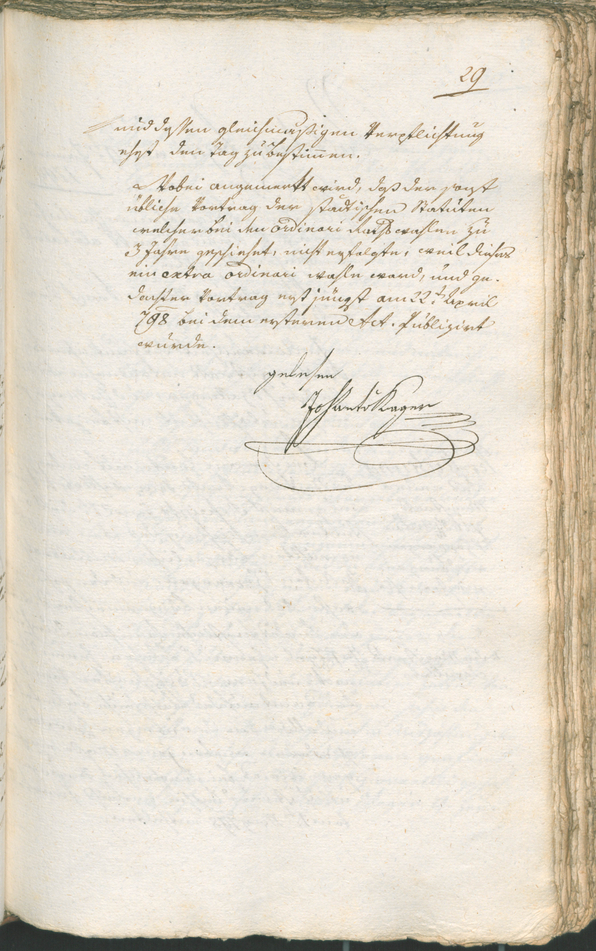 29
und dessen gleichmässigen Verpflichtung
erst den Tag zu bestimmen.
Wobei angemerkt wird, das der sonst
übliche Vortrag der städtischen Statuten
welcher bei den ordinari Rathswahlen zu
3 Jahre geschiehet, nicht erfolgte, weil dieses
ein extra ordinari wahle ward, und ge-
dachter Vortrag erst jüngst am 22t April
798 bei dem ersteren Act. Publizirt
wurde.
gelesen
Joh Kager